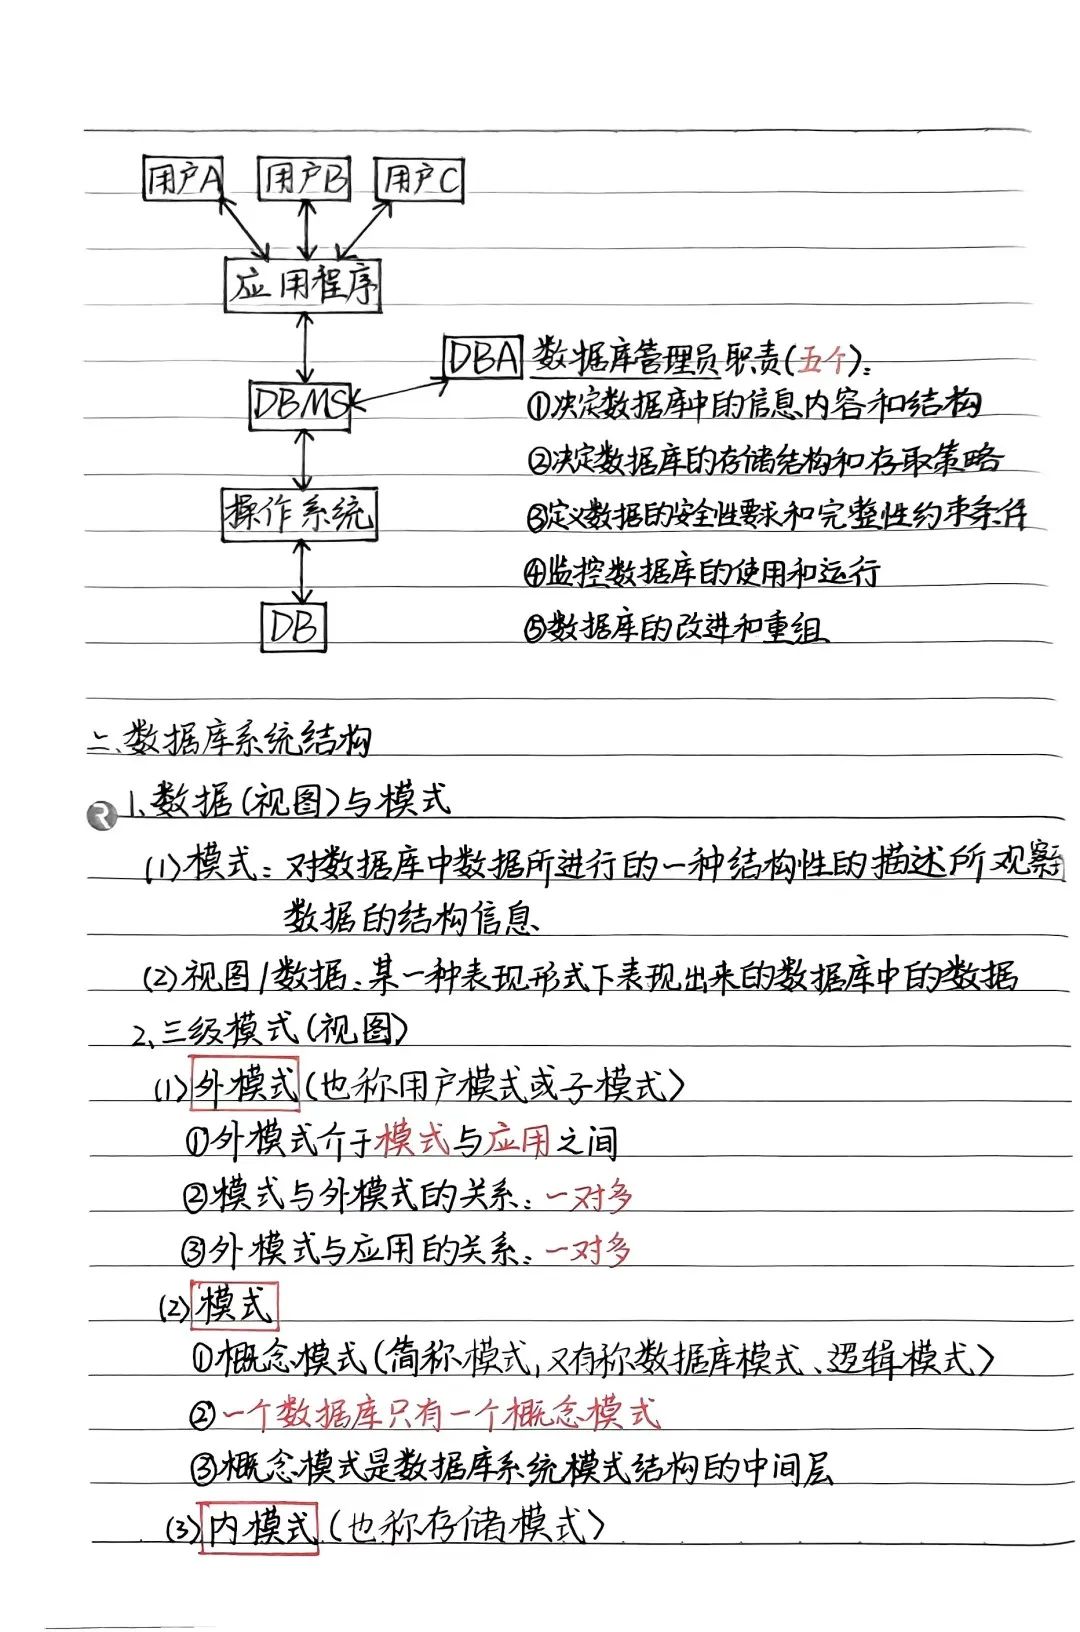 用户A 用户B 用户C
应用程序
DBA 数据库管理员职责(五个):
DBMS
①决定数据库中的信息内容和结构
②决定数据库的存储结构和存取策略
操作系统
③定义数据的安全性要求和完整性约束条件
④监控数据库的使用和运行
DB
⑤数据库的改进和重组
二、数据库系统结构
R
1、数据(视图)与模式
(1)模式:对数据库中数据所进行的一种结构性的描述所观察到
数据的结构信息
(2)视图/数据:某一种表现形式下表现出来的数据库中的数据
2、三级模式(视图)
(1)外模式(也称用户模式或子模式)
①外模式介于模式与应用之间
②模式与外模式的关系:一对多
③外模式与应用的关系:一对多
(2)模式
①概念模式(简称模式,又有称数据库模式、逻辑模式)
②一个数据库只有一个概念模式
③概念模式是数据库系统模式结构的中间层
(3)内模式(也称存储模式)